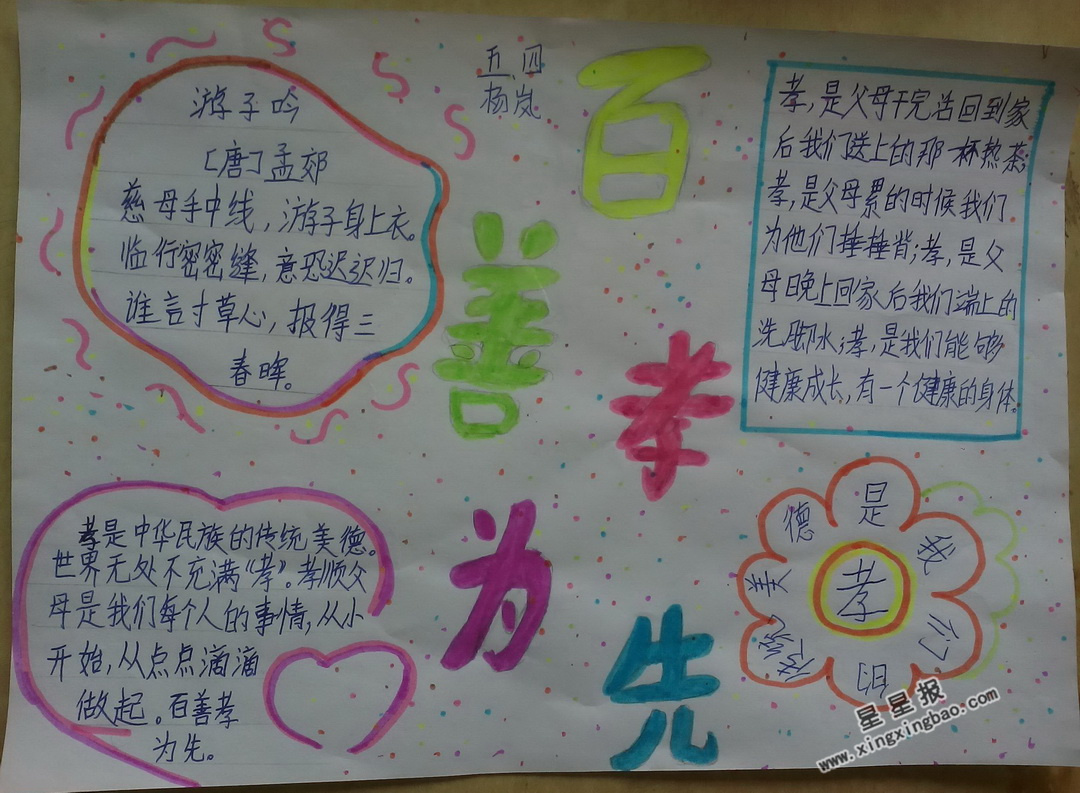 游子吟
[唐]孟郊
慈母手中线，游子身上衣。
临行密密缝，意恐迟迟归。
谁言寸草心，报得三
春晖。
五.四
杨岚
百
善
孝
为
先
孝，是父母干完活回到家
后我们送上的那一杯热茶；
孝，是父母累的时候我们
为他们捶捶背；孝，是父
母晚上回家后我们端上的
洗脚水；孝，是我们能够
健康成长，有一个健康的身体。
孝是中华民族的传统美德。
世界无处不充满“孝”。孝顺父
母是我们每个人的事情，从小
开始，从点点滴滴
做起。百善孝
为先。
孝
是我们的传统美德
星星报
www.xingxingbao.com